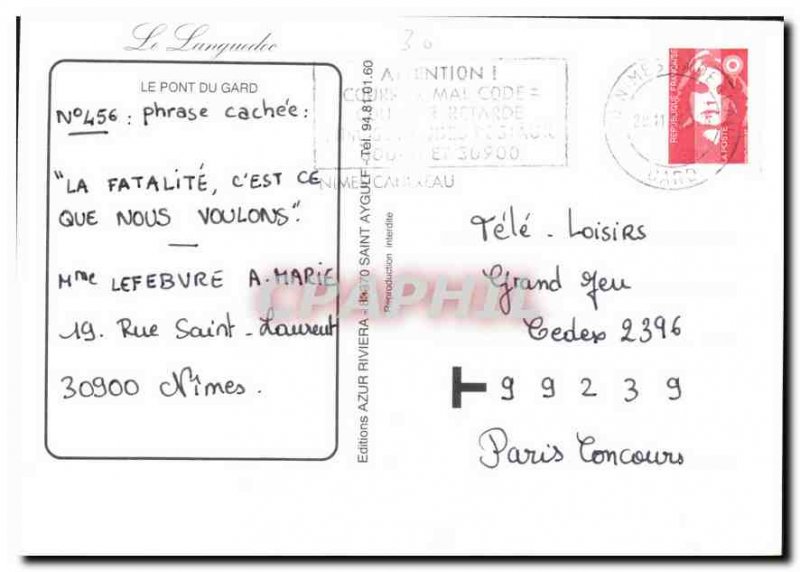 Le Languedoc
LE PONT DU GARD
N°456 : phrase cachée :
"LA FATALITÉ, C'EST CE
QUE NOUS VOULONS".
Mme LEFEBVRE A. MARIE
19. Rue Saint - Laurent
30900 Nîmes.
Editions AZUR RIVIERA - 83370 SAINT AYGULF - Tél. 94.81.01.60
Reproduction interdite
30
ATTENTION !
MAL CODE =
RETARDE
30900
NIMES
REPUBLIQUE FRANÇAISE
LA POSTE
GARD
Télé - Loisirs
Grand Jeu
Cedex 2396
99239
Paris Concours
CPAPHIL